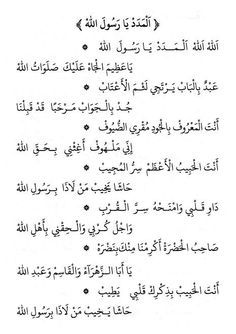 ﴿ اَلْمَدَدْ يَا رَسُولَ اللهْ ﴾
اللهْ اللهْ اَلْمَدَدْ يَا رَسُولَ اللهْ *
يَا عَظِيمَ الْجَاهْ عَلَيْكَ صَلَوَاتُ اللهْ
عَبْدٌ بِالْبَابْ يَرْتَجِي لَثْمَ الْأَعْتَابْ *
جُدْ بِالْجَوَابْ مَرْحَبًا قَدْ قَبِلْنَا
أَنْتَ الْمَعْرُوفْ بِالْجُودِ مُقْرِي الضُّيُوفْ *
إِنِّي مَلْهُوفْ أَغِثْنِي بِحَقِّ اللهْ
أَنْتَ الْحَبِيبْ الْأَعْظَمْ سِرُّ الْمُجِيبْ *
حَاشَا يَخِيبْ مَنْ لَاذَا بِرَسُولِ اللهْ
دَاوِ قَلْبِي وَامْنَحْهُ سِرَّ الْقُرْبِ *
وَاجْلُ كُرَبِي وَالْحِقْنِي بِأَهْلِ اللهْ
صَاحِبُ الْحَضْرَةْ أَكْرِمْنَا مِنْكَ بِنَضْرَةْ *
يَا أَبَا الزَّهْرَاءْ وَالْقَاسِمْ وَعَبْدِ اللهْ
أَنْتَ الْحَبِيبْ بِذِكْرِكَ قَلْبِي يَطِيبْ *
حَاشَا يَخِيبْ مَنْ لَاذَا بِرَسُولِ اللهْ